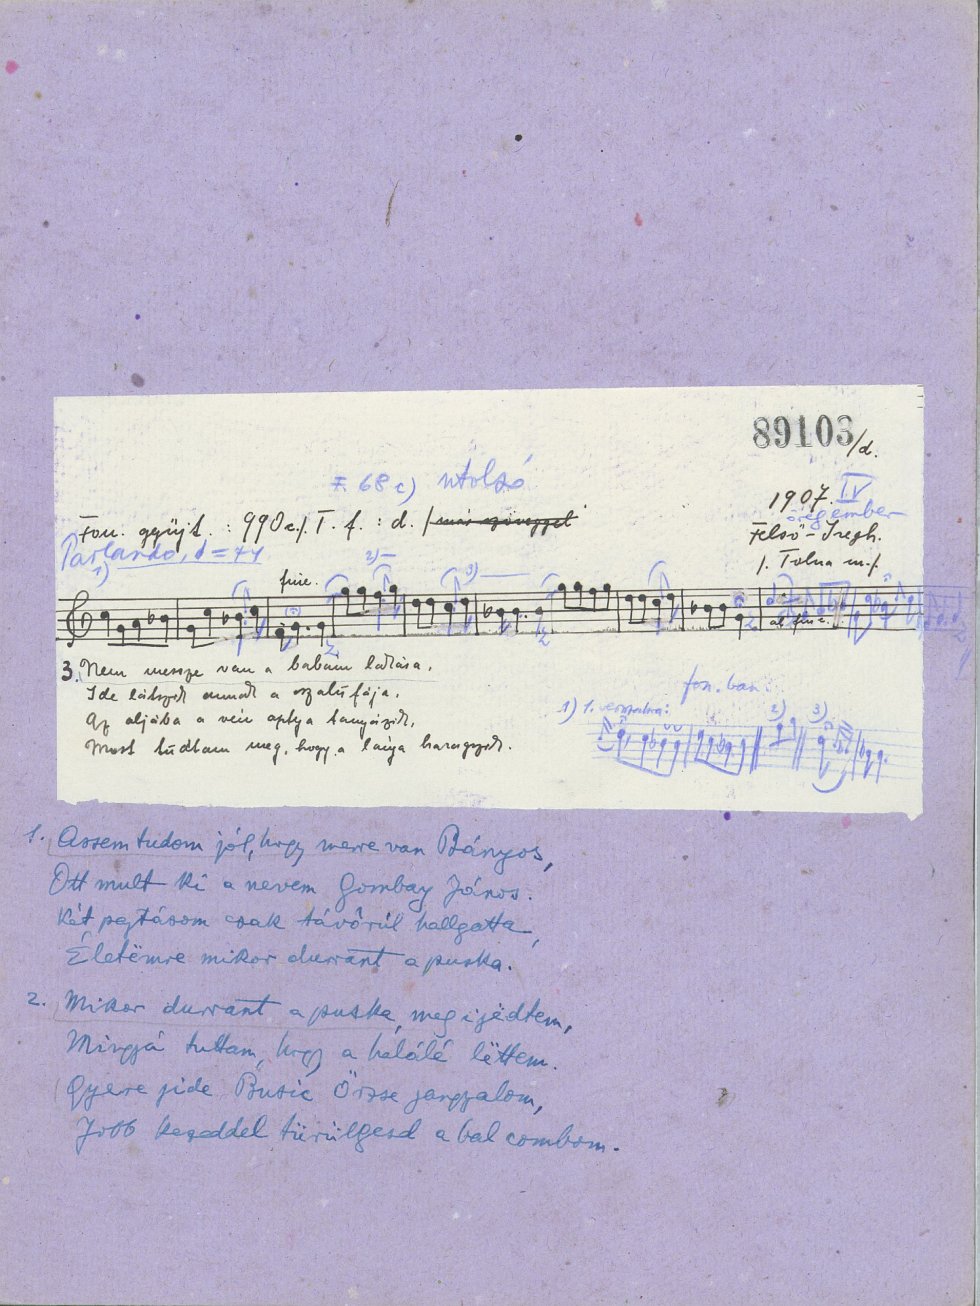 89103/d.
F. 68 c) utolsó
1907 IV
öregember
Fon. gyüjt. : 990c/. T. f. : d. /
Felső-Iregh.
/. Tolna m./.
Parlando, = 74
1)
fine.
2)
3)
al fine.
3. Nem messze van a babám lakása.
Ide látszik annak a asztalfája.
Az aljába a vén apja tanyázik,
Most tudtam meg, hogy a lánya haragszik.
fon. ban:
1) 1. versszakra:
2)
3)
1. Assem tudom jól, hogy merre van Bányos,
Ott mult ki a nevem Gombay János.
Két pajtásom csak távórúl hallgatta,
Életëmre mikor durrant a puska.
2. Mikor durrant a puska, megijedtem,
Mingyá tuttam, hogy a halálé lëttem.
Gyere jide Busic Örzse jangyalom,
Jobb kezeddel türülgesd a bal combom.